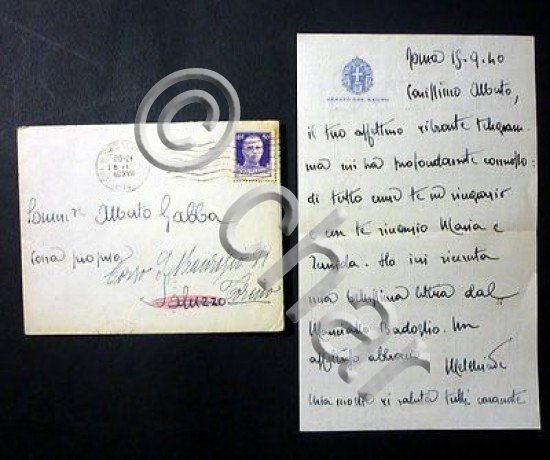 © Char
20-21
Comm.re Alberto Gabba
Casa propria
Corso G. Maurizio
Saluzzo
Torino
SENATO DEL REGNO
Roma 15-9-40
Carissimo Alberto,
il tuo affettuoso vibrante telegram-
ma mi ha profondamente commosso:
di tutto cuore te ne ringrazio
e con te ringrazio Maria e
Ho ieri ricevuta
una bellissima lettera dal
Maresciallo Badoglio. Un
affettuoso abbraccio
Melchiade
mia moglie vi saluta tutti caramente